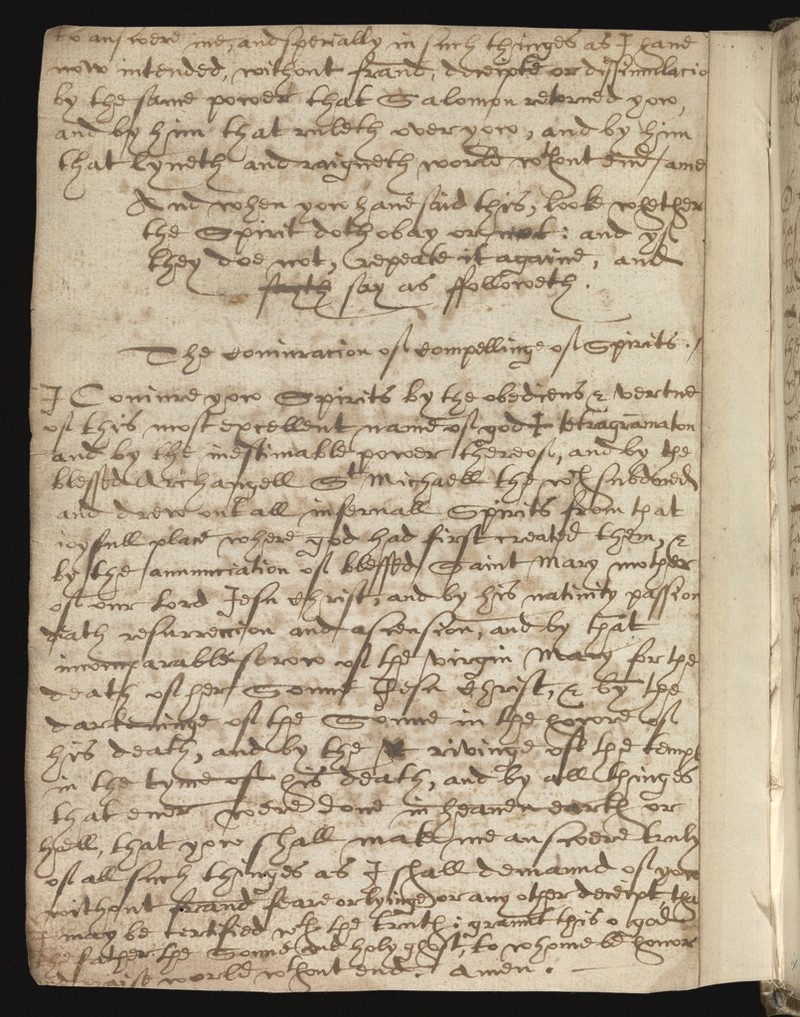 to answere me, and specially in such thinges as I haue
now intended, without fraud, deceipte or dissimulacio
by the same power that Salomon retorned yow,
and by him that ruleth over yow, and by him
that lyueth and raigneth world wthout end / ame
And when yow haue said this, looke whether
the Spirit doth obay or not: and yf
they doe not, repeate it againe, and
say as ffolloweth.
The coniuracion of compellinge of Spirits./
I Coniure yow Spirits by the obediens & vertue
of this most excellent name of god ✝ tetragramaton
and by the inestimable power thereof, and by the
blessed Archangell St Michaell the wch subdued
and drew out all infernall Spirits from that
ioyfull place where god had first created them, &
by the annunciation of blessed Saint Mary mother
of our Lord Jesu Christ, and by his natinity passion
death resurreccion and ascension, and by that
incomparable sorow of the virgin Mary for the
death of her Sonne Jesu Christ, & by the
darkeninge of the Sonne in the howre of
his death, and by the rivinge of the templ
in the tyme of his death, and by all thinges
that ever were done in heauen earth or
hell, that yow shall make me answere truly
of all such thinges as I shall demaund of yow
without fraud feare or lyinge or any other deceipt, tha
I may be certified wth the truth: graunt this o god
the father the Sonne and holy ghost, to whome be honor
and praise world wthout end. Amen.